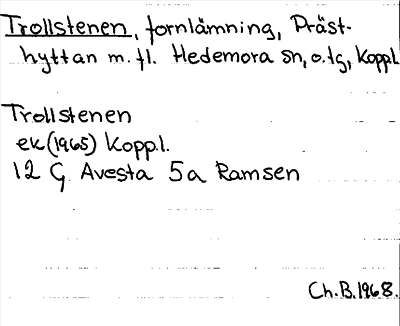 Trollstenen, fornlämning, Präst-
hyttan m.fl. Hedemora sn, o.tg, Koppl.
Trollstenen
ek (1965) Koppl.
12 G Avesta 5a Ramsen
Ch.B. 1968.